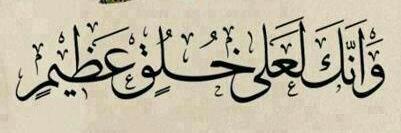 وَاَنَّكَ لَعَلى خُلُقٍ عَظيمٍ